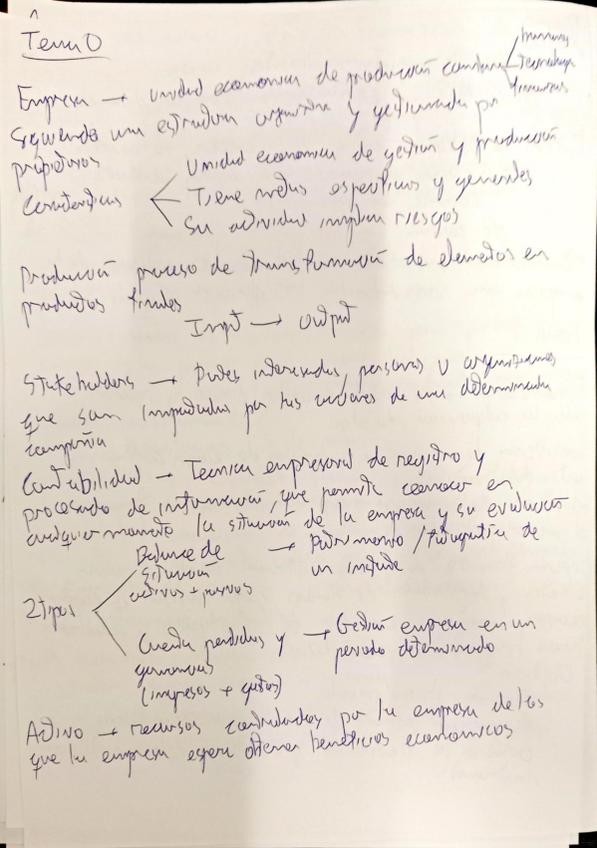 Tema 0
humanos
Empresa → Unidad economica de producción combina tecnologicos
financieros
siguiendo una estructura organizativa y gestionada por
propietarios
Unidad economica de gestión y producción
Caracteristicas Tiene metas especificas y generales
Su actividad implica riesgos
Producción proceso de transformación de elementos en
productos finales
Input → output
Stakeholders → Partes interesadas, personas u organizaciones
que son impactadas por las acciones de una determinada
compañia
Contabilidad → Tecnica empresarial de registro y
procesado de información, que permite conocer en
cualquier momento la situación de la empresa y su evolución
Balance de → Patrimonio / fotografia de
situación un instante
activos + pasivos
2 tipos
Cuenta perdidas y → Gestión empresa en un
ganancias periodo determinado
(ingresos + gastos)
Activo → recursos controlados por la empresa de los
que la empresa espera obtener beneficios economicos